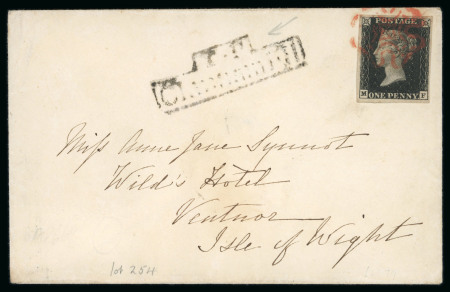 POSTAGE
M F
ONE PENNY
Miss Anne Jane Synnot
Wild's Hotel
Ventnor
Isle of Wight
lot 254